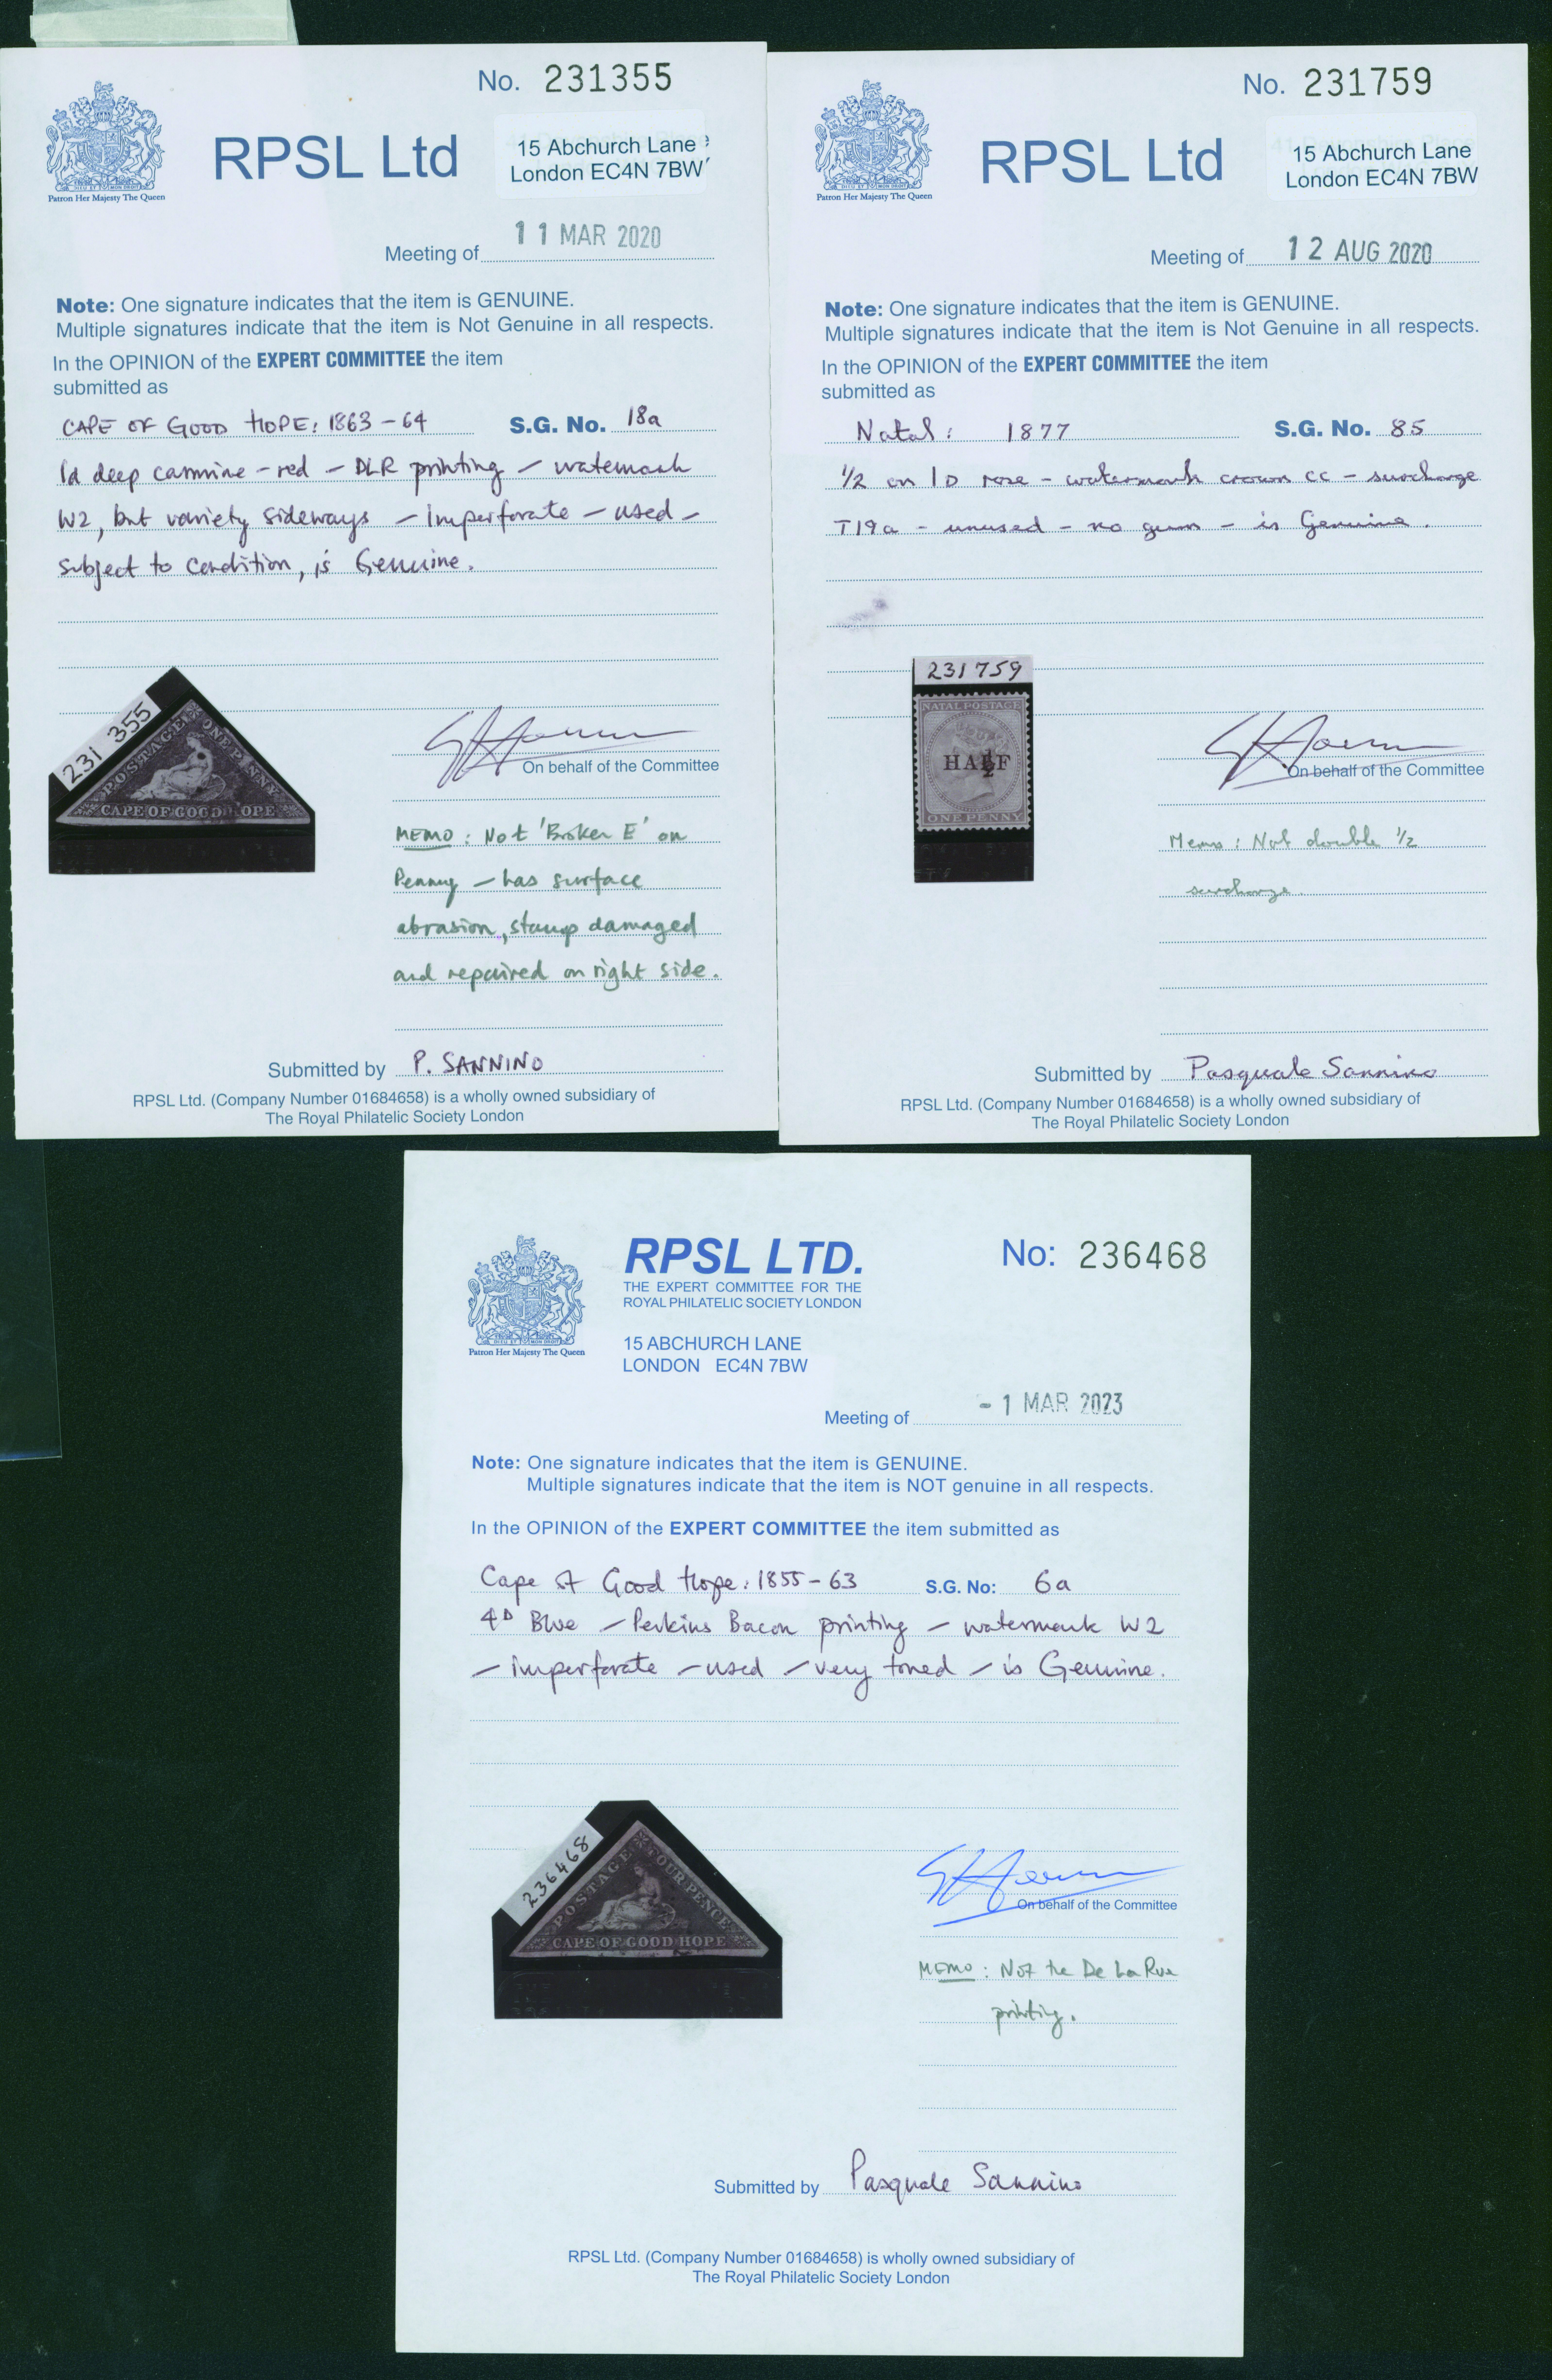 No. 231355
RPSL Ltd
15 Abchurch Lane
London EC4N 7BW
Patron Her Majesty The Queen
Meeting of 11 MAR 2020
Note: One signature indicates that the item is GENUINE.
Multiple signatures indicate that the item is Not Genuine in all respects.
In the OPINION of the EXPERT COMMITTEE the item
submitted as
CAPE OF GOOD HOPE: 1863-64 S.G. No. 18a
1d deep carmine-red - DLR printing - watermark
W2, but variety sideways - imperforate - used -
subject to condition, is Genuine.
231 355
POSTAGE ONE PENNY
CAPE OF GOOD HOPE
On behalf of the Committee
MEMO: Not 'Broken E' on
Penny - has surface
abrasion, stamp damaged
and repaired on right side.
Submitted by P. SANNINO
RPSL Ltd. (Company Number 01684658) is a wholly owned subsidiary of
The Royal Philatelic Society London
No. 231759
RPSL Ltd
15 Abchurch Lane
London EC4N 7BW
Patron Her Majesty The Queen
Meeting of 12 AUG 2020
Note: One signature indicates that the item is GENUINE.
Multiple signatures indicate that the item is Not Genuine in all respects.
In the OPINION of the EXPERT COMMITTEE the item
submitted as
Natal: 1877 S.G. No. 85
1/2 on 1D rose - watermark crown CC - surcharge
T19a - unused - no gum - is Genuine.
231759
NATAL POSTAGE
HALF
½
ONE PENNY
On behalf of the Committee
Memo: Not double 1/2
surcharge.
Submitted by Pasquale Sannino
RPSL Ltd. (Company Number 01684658) is a wholly owned subsidiary of
The Royal Philatelic Society London
RPSL LTD.
THE EXPERT COMMITTEE FOR THE
ROYAL PHILATELIC SOCIETY LONDON
No: 236468
15 ABCHURCH LANE
LONDON EC4N 7BW
Patron Her Majesty The Queen
Meeting of - 1 MAR 2023
Note: One signature indicates that the item is GENUINE.
Multiple signatures indicate that the item is NOT genuine in all respects.
In the OPINION of the EXPERT COMMITTEE the item submitted as
Cape of Good Hope: 1855-63 S.G. No: 6a
4D Blue - Perkins Bacon printing - watermark W2
- imperforate - used - very toned - is Genuine.
236468
POSTAGE FOUR PENCE
CAPE OF GOOD HOPE
On behalf of the Committee
MEMO: Not the De La Rue
printing.
Submitted by Pasquale Sannino
RPSL Ltd. (Company Number 01684658) is wholly owned subsidiary of
The Royal Philatelic Society London